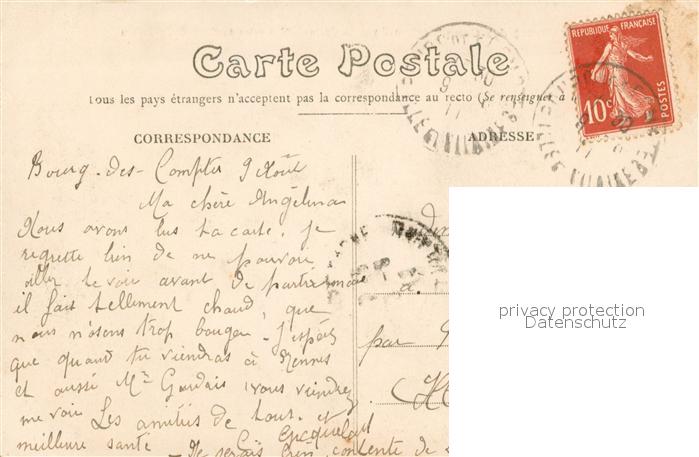 RÉPUBLIQUE FRANÇAISE
10c
POSTES
Carte Postale
Tous les pays étrangers n'acceptent pas la correspondance au recto (Se renseigner à l
CORRESPONDANCE
ADRESSE
Bourg-des-Comptes 9 Août
Ma chère Angélina
Nous avons lus ta carte. Je
regrette bien de ne pouvoir
aller te voir avant de partir
il fait tellement chaud, que
nous n'osons trop bouger. J'espère
que quand tu viendras à Rennes
et aussi Mr Gardais vous viendrez
me voir Les amitiés de tous. et
meilleure santé
Je serais bien contente de
par
privacy protection
Datenschutz